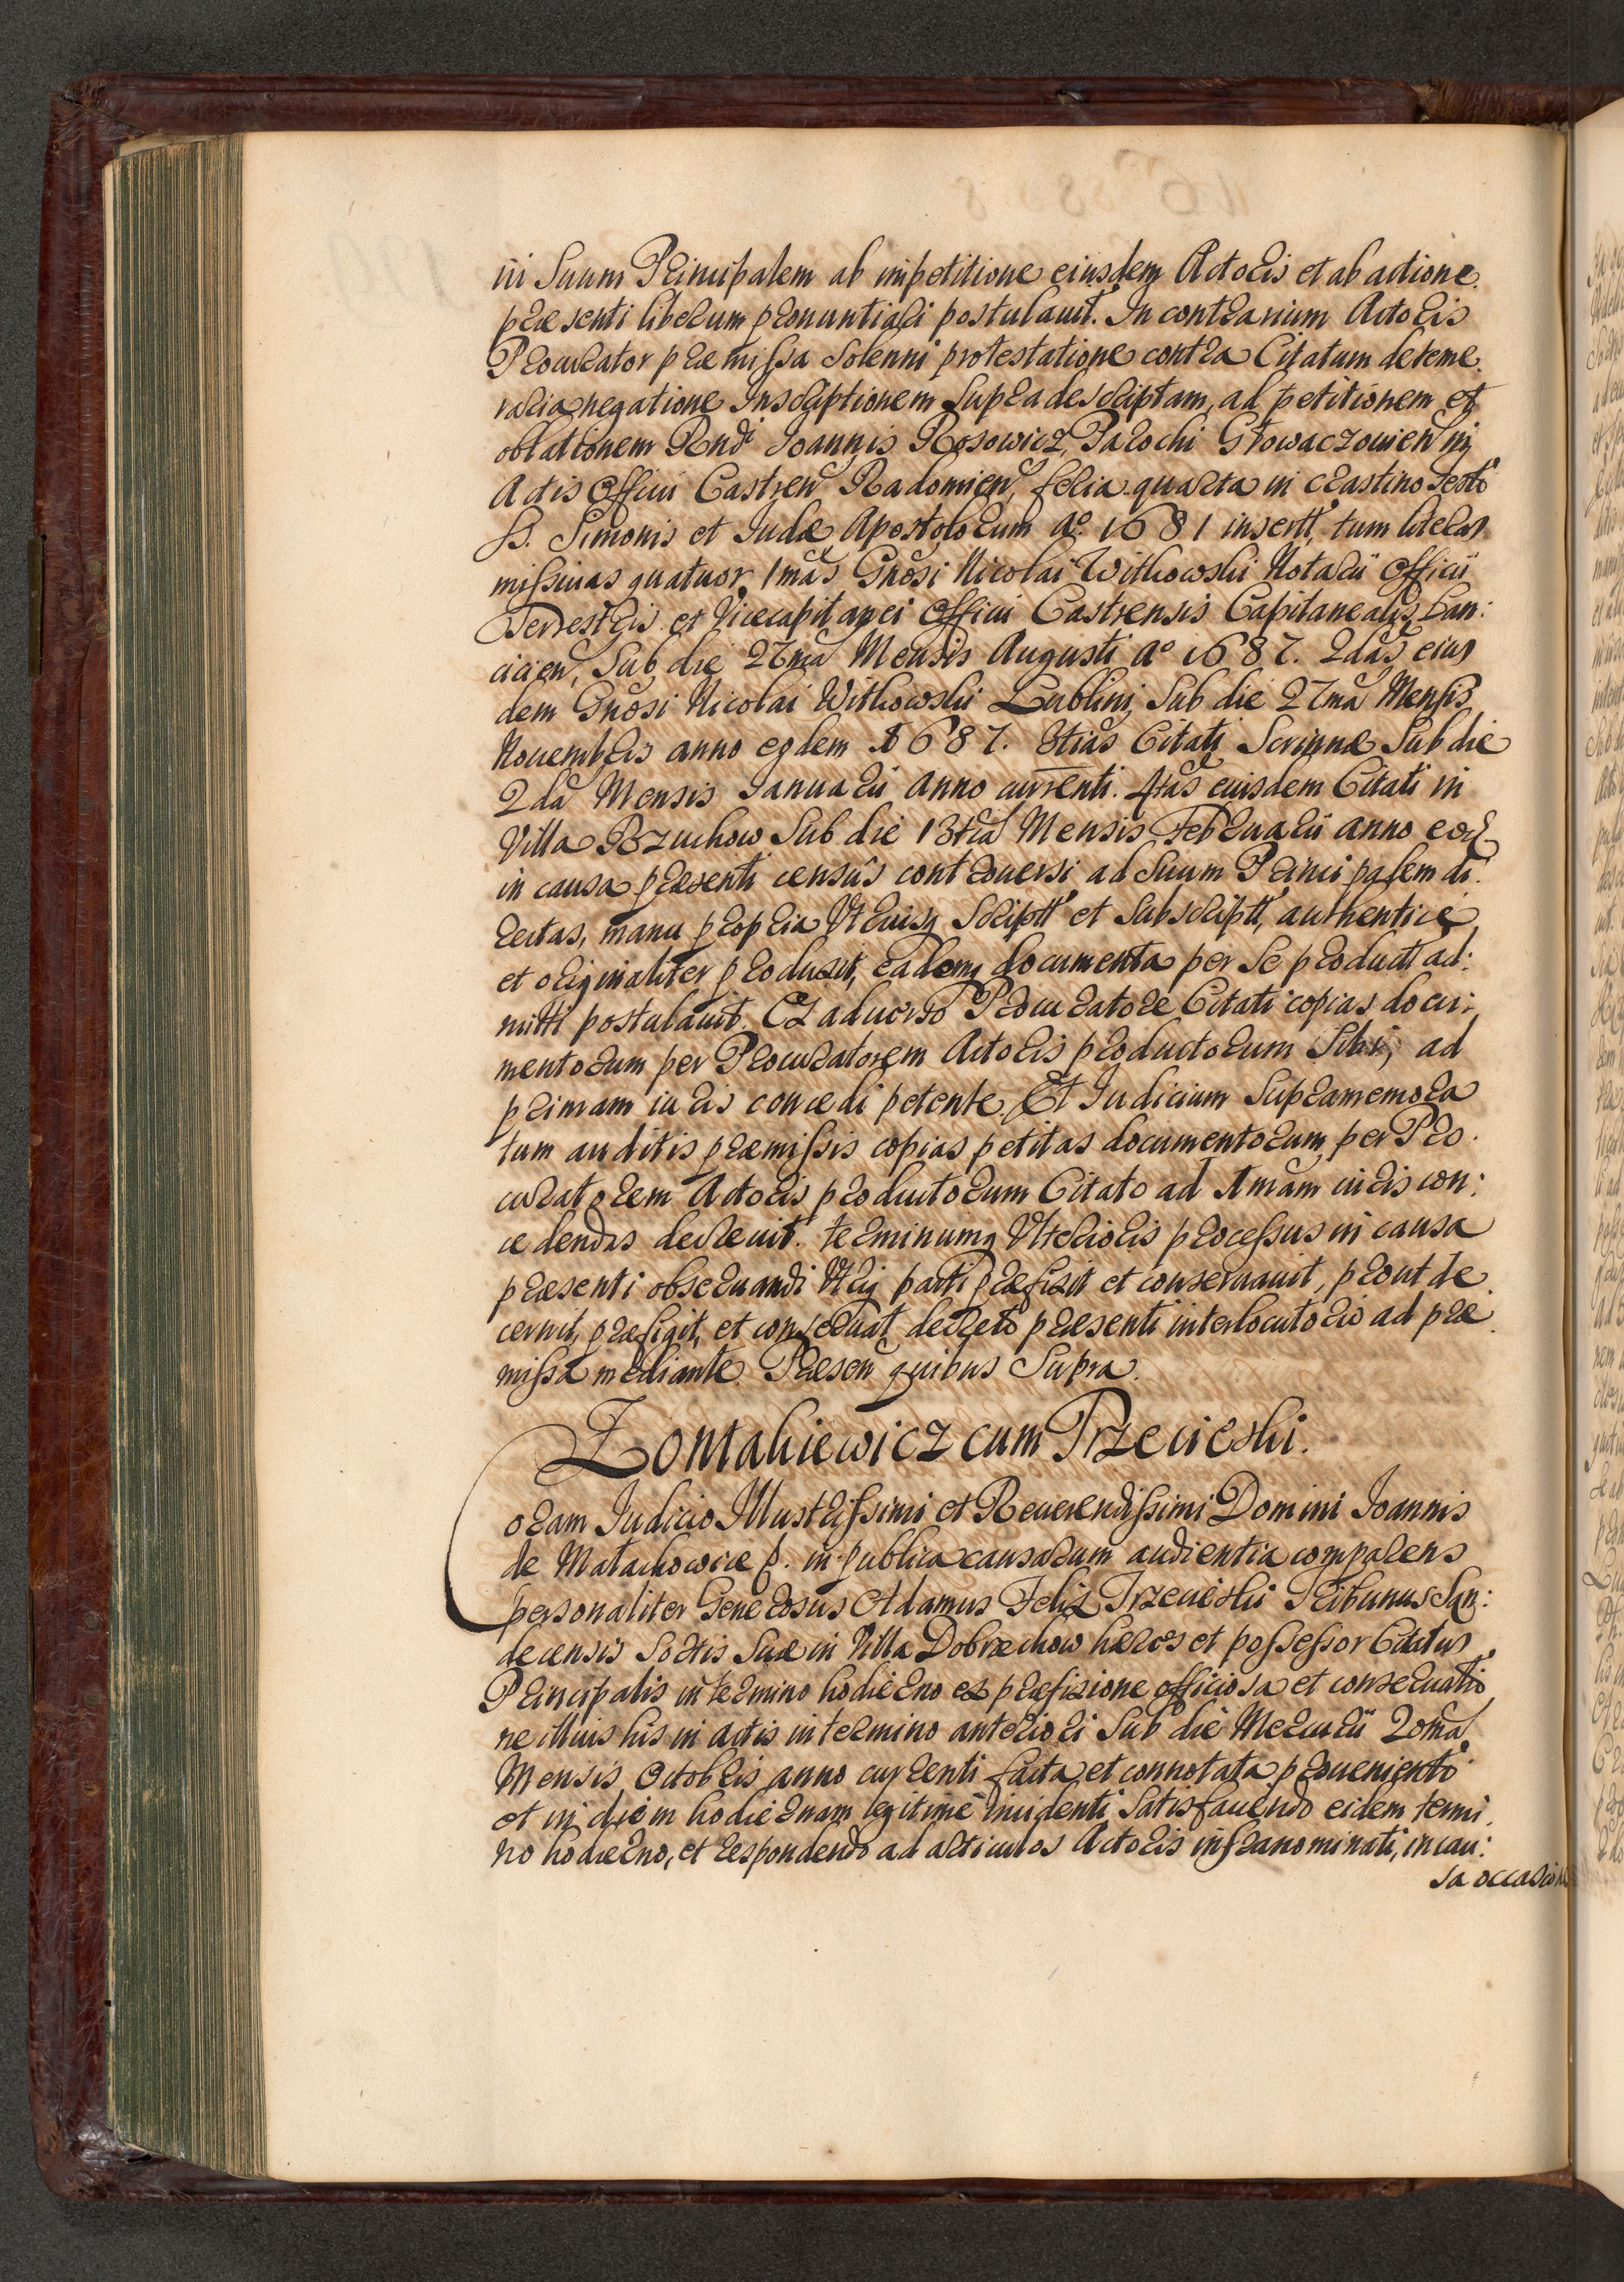 ni Suum Principalem ab impetitione eiusdem Actoris et ab actione
præsenti liberum pronuntiari postulauit. In contrarium Actoris
Procurator præmissa Solenni protestatione contra Citatum de teme
raria negatione Inscriptionem Supra descriptam, ad petitionem et
oblationem Rndi Joannis Rosowicz, Parochi Głowaczouien in
Actis Officii Castren Radomien, feria quarta in crastino Festi
SS. Simonis et Judæ Apostolorum Aº 1681 insertt, tum literas
missiuas quatuor, 1mas Gnosi Nicolai Witkowski Notarii Officii
Terrestris et Vicecapitanei Officii Castrensis Capitanealis Lan:
cicien, Sub die 27ma Mensis Augusti Aº 1687. 2das eius
dem Gnosi Nicolai Witkowski Lublini, Sub die 27ma Mensis
Nouembris anno eodem 1687. 3tias Citati Scrinnæ Sub die
2da Mensis Januarii anno currenti. 4tas euisdem Citati in
Villa Bzuchow Sub die 13tia Mensis Februarii anno eod
in causa præsenti censûs controuersi ad Suum Principalem di:
rectas, manu propria Vtriusq Scriptt et Subscriptt, authentice
et originaliter produxit, eademq documenta per Se producta ad:
mitti postulauit. Ex aduerso Procuratore Citati copias docu:
mentorum per Procuratorem Actoris productorum Sibi, ad
primam iuris concedi petente. Et Iudicium Supramemora
tum auditis præmissis copias petitas documentorum per Pro
curatorem Actoris productorum Citato ad 1mam iuris con:
cedendas decreuit. terminumq Vlterioris processus in causa
præsenti obseruandi Vtriq parti præfixit et conseruauit, prout de
cernit, præfigit, et conseruat decreto præsenti interlocutorio ad præ
missa mediante. Præsen quibus Supra.
Zontakiewicz cum Przecieski.
Coram Judicio Illustrissimi et Reuerendissimi Domini Joannis
de Małachowice p. in publica causarum audientia comparens
personaliter Generosus Adamus Felix Trzecieski Tribunus San:
decensis Sortis Suæ in Villa Dobrzechow hæres et possessor Citatus
Principalis in termino hodierno ex præfixione officiosa et conseruatio
ne illius his in actis in termino anteriori Sub die Mercurii 20ma
Mensis Octobris anno currenti facta et connotata proueniente
et in diem hodiernam legitime incidenti Satisfaciendo eidem termi
no hodierno, et respondendo ad articulos Actoris infranominati, in cau:
sa occasio